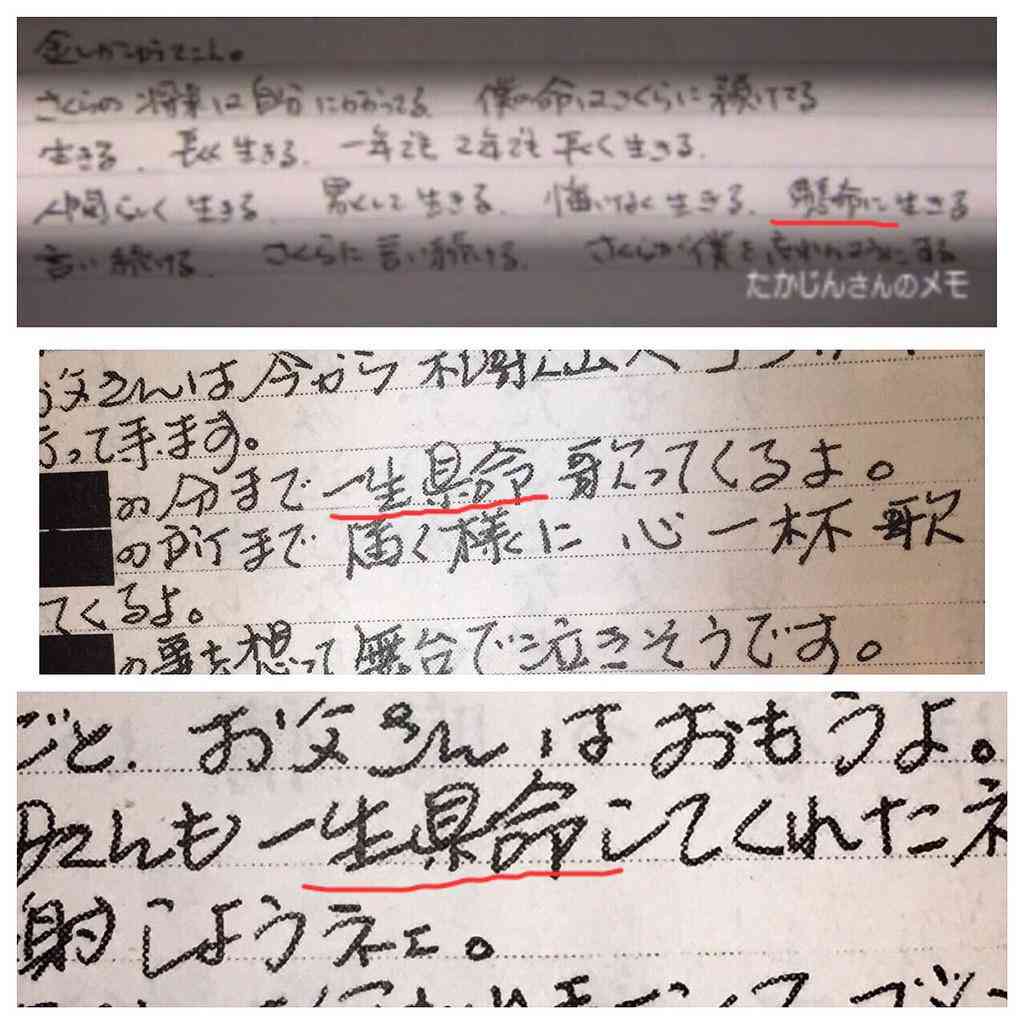 さくらの将来は自分にかかってる 僕の命はさくらに預けてる
生きる、長く生きる、一年でも2年でも長く生きる、
人間らしく生きる、 生きる、悔いなく生きる、懸命に生きる
言い続ける、さくらに言い続ける、さくらが僕を
たかじんさんのメモ
お父さんは今から
行って来ます。
の分まで一生県命歌ってくるよ。
の所まで届く様に心一杯歌
てくるよ。
の事を想って舞台で泣きそうです。
ごと、お父さんはおもうよ。
さんも一生県命してくれたネ
謝しようネェ。